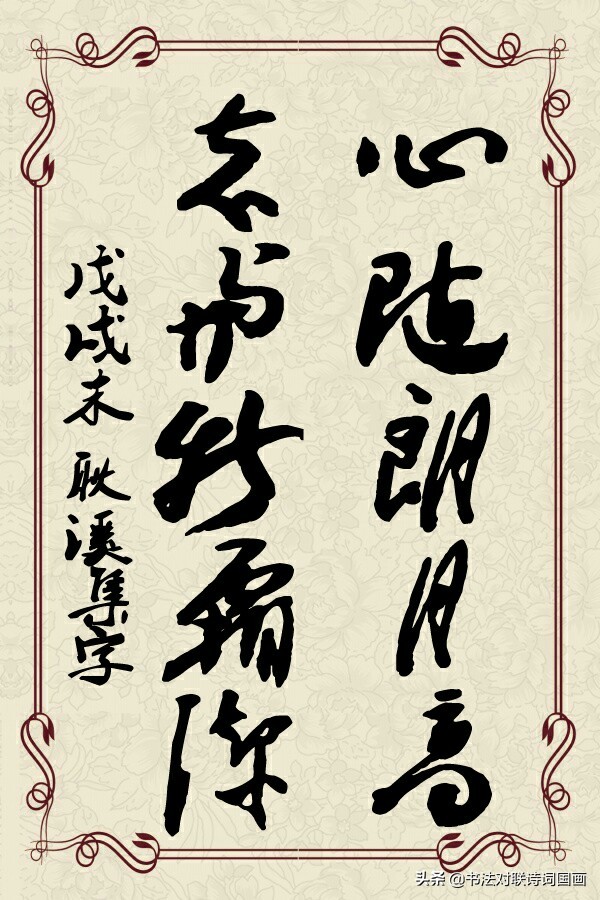 心随朗月高
志與秋霜潔
戊戌末 耿溪集字
头条 @书法对联诗词国画